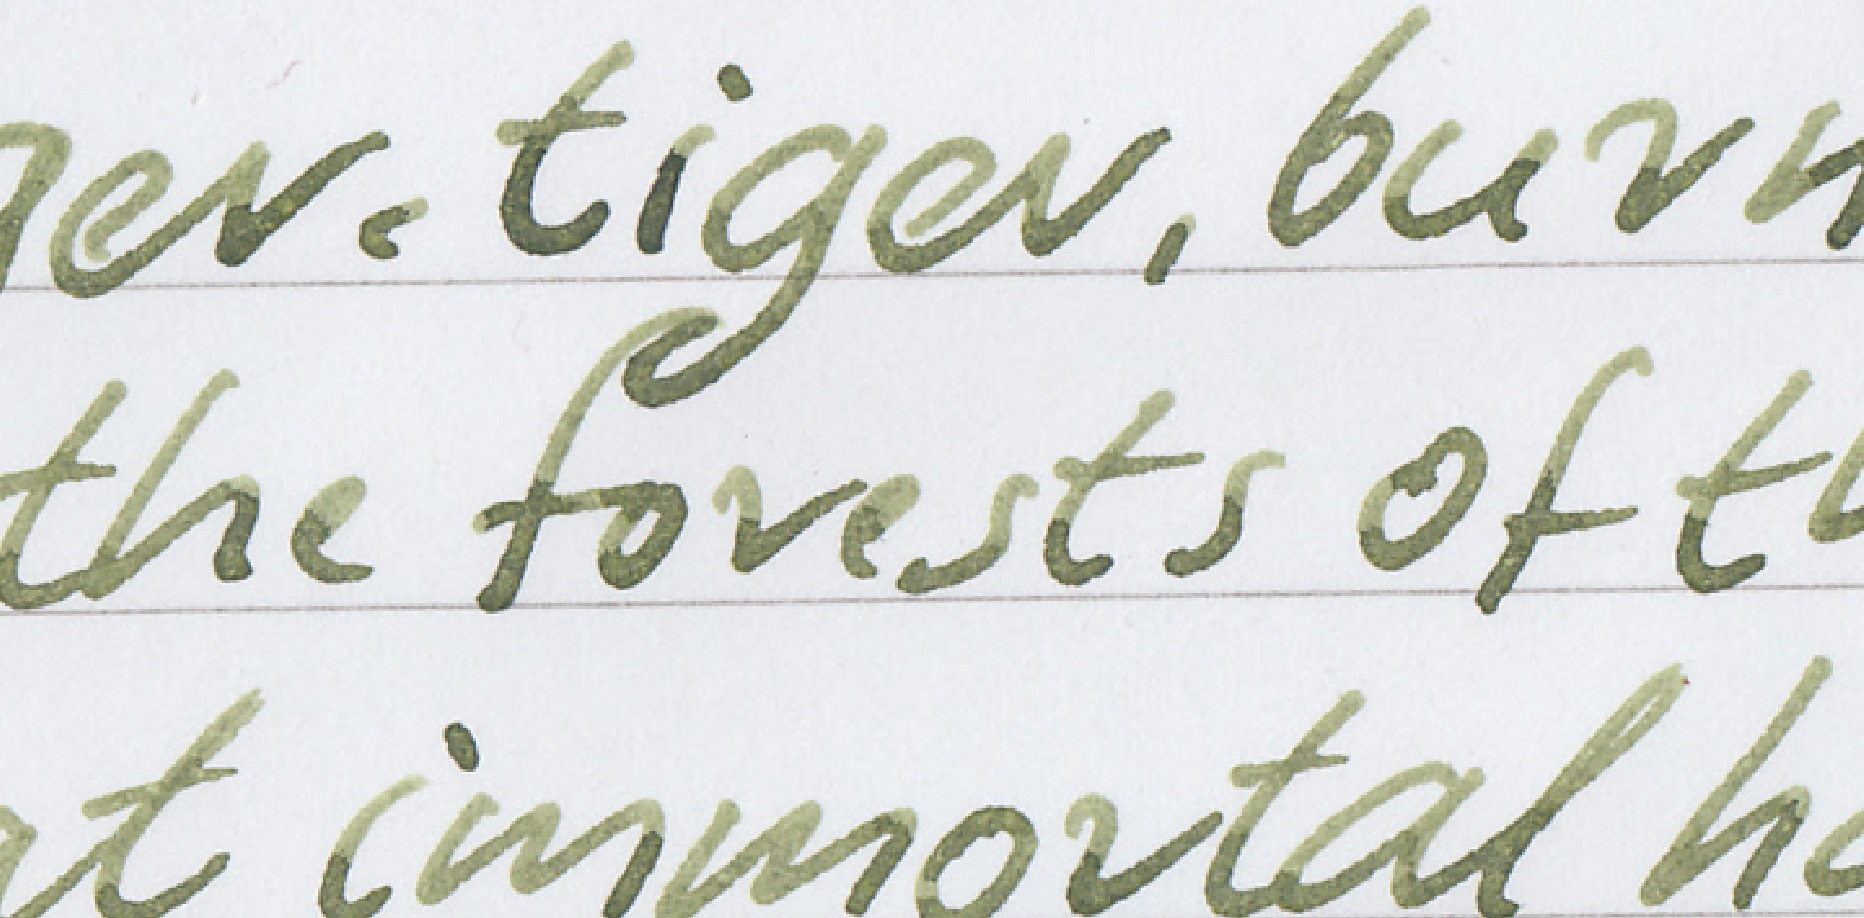 ger. tiger, burn
the forests of th
at immortal ha